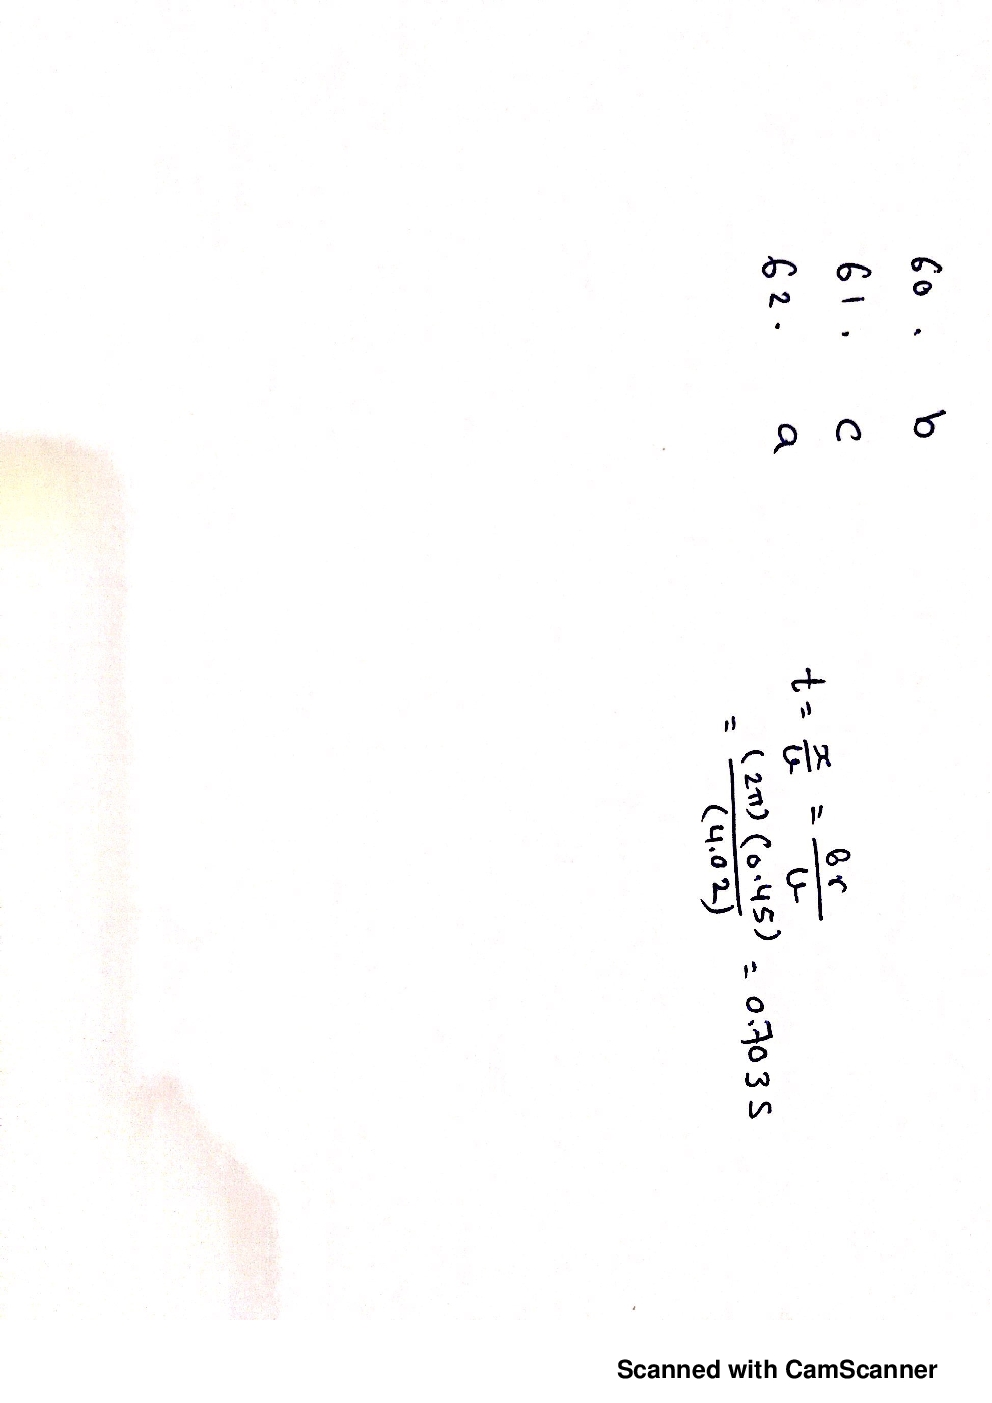 60. b
61. c
62. a
t = x/v = θr/v
= (2π)(0.45)/(4.02) = 0.703 s
Scanned with CamScanner